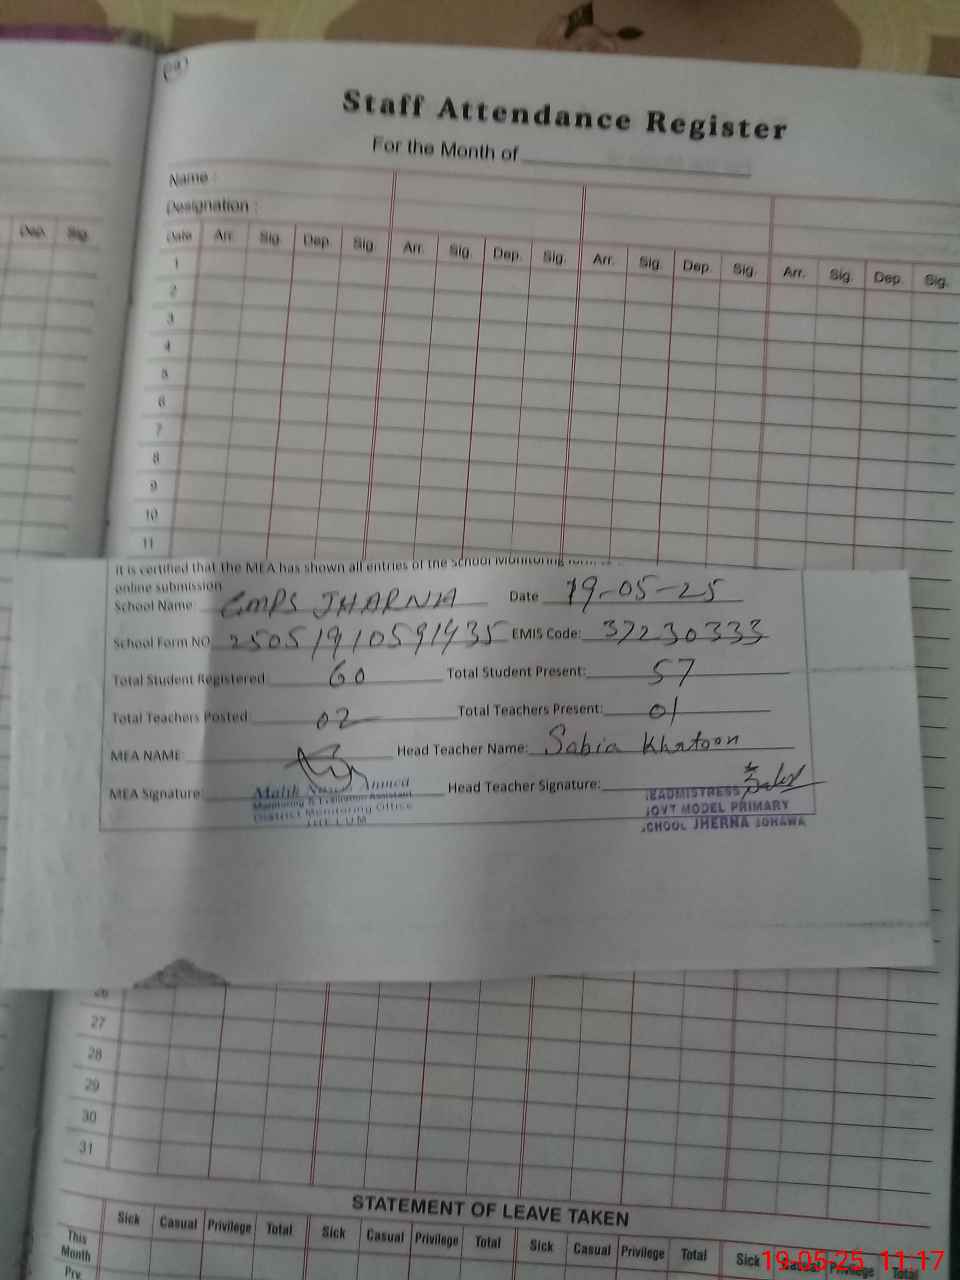 Staff Attendance Register
For the Month of
Name :
Designation :
Dep. Sig.
Date Arr. Sig. Dep. Sig. Arr. Sig. Dep. Sig. Arr. Sig. Dep. Sig. Arr. Sig. Dep. Sig.
1
2
3
4
5
6
7
8
9
10
11
It is certified that the MEA has shown all entries of the School Monitoring
online submission
School Name GMPS JHARNA Date 19-05-25
School Form NO. 25051910591435 EMIS Code: 37230333
Total Student Registered 60 Total Student Present: 57
Total Teachers Posted 02 Total Teachers Present: 01
MEA NAME Head Teacher Name: Sabia Khatoon
MEA Signature: Head Teacher Signature:
Malik Ahmed
Monitoring & Evaluation Assistant
District Monitoring Office
JHELUM
HEADMISTRESS
GOVT MODEL PRIMARY
SCHOOL JHERNA SOHAWA
26
27
28
29
30
31
STATEMENT OF LEAVE TAKEN
Sick Casual Privilege Total Sick Casual Privilege Total Sick Casual Privilege Total Sick Casual Privilege Total
This
Month
Prv.
19-05-25 11:17